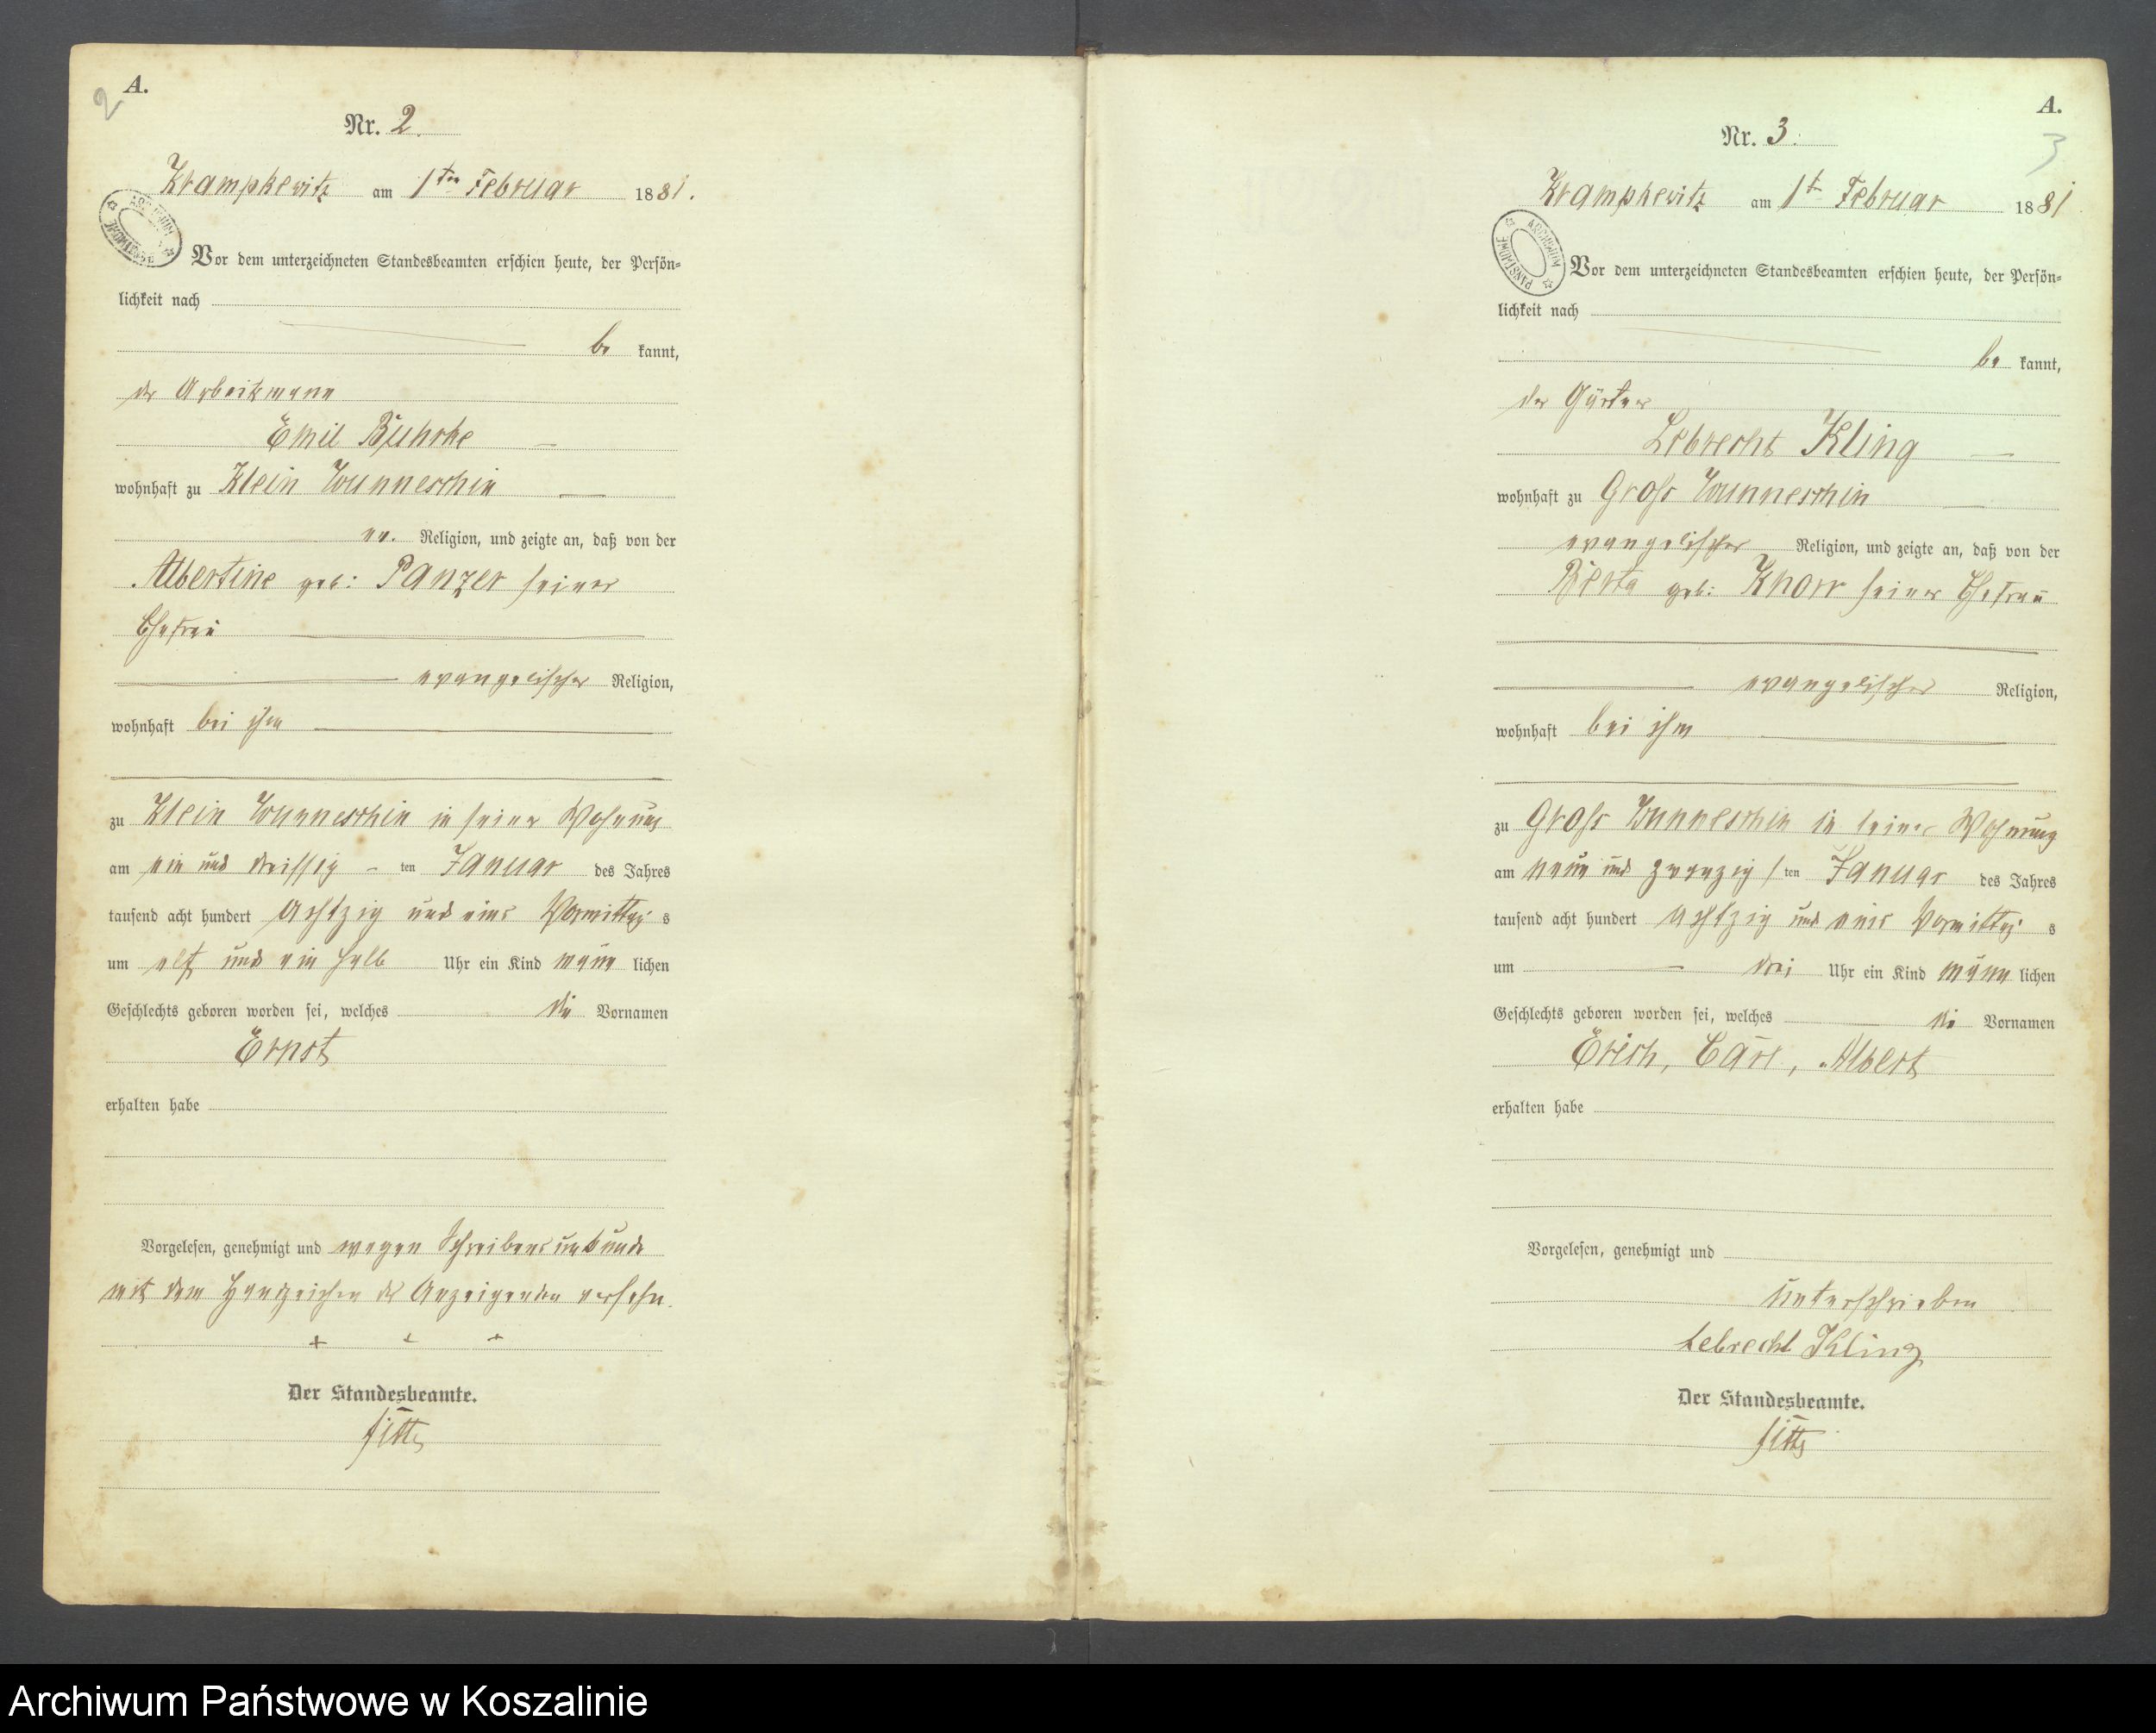 2
A.
Nr. 2.
Krampkewitz am 1ten Februar 1881.
Vor dem unterzeichneten Standesbeamten erschien heute, der Persön-
lichkeit nach
be kannt,
der Arbeitsmann
Emil Buhrke
wohnhaft zu Klein Wunneschin
ev. Religion, und zeigte an, daß von der
Albertine geb: Panzer seiner
Ehefrau
evangelischer Religion,
wohnhaft bei ihm
zu Klein Wunneschin in seiner Wohnung
am ein und dreissig ten Januar des Jahres
tausend acht hundert achtzig und eins Vormittag s
um elf und ein halb Uhr ein Kind männ lichen
Geschlechts geboren worden sei, welches die Vornamen
Ernst
erhalten habe
Vorgelesen, genehmigt und wegen Schreibensunkunde
mit dem Handzeichen des Anzeigenden versehn.
+ + +
Der Standesbeamte.
A.
3
Nr. 3.
Krampkewitz am 1t Februar 1881
ARCHIWUM PAŃSTWOWE
Vor dem unterzeichneten Standesbeamten erschien heute, der Persön-
lichkeit nach
be kannt,
der Gärtner
Lebrecht Kling
wohnhaft zu Gross Wunneschin
evangelischer Religion, und zeigte an, daß von der
Berta geb: Knorr seiner Ehefrau
evangelischer Religion,
wohnhaft bei ihm
zu Gross Wunneschin in seiner Wohnung
am neun und zwanzig s ten Januar des Jahres
tausend acht hundert achtzig und eins Vormittag s
um drei Uhr ein Kind männ lichen
Geschlechts geboren worden sei, welches die Vornamen
Erich, Carl, Albert
erhalten habe
Vorgelesen, genehmigt und
unterschrieben
Lebrecht Kling
Der Standesbeamte.
Archiwum Państwowe w Koszalinie